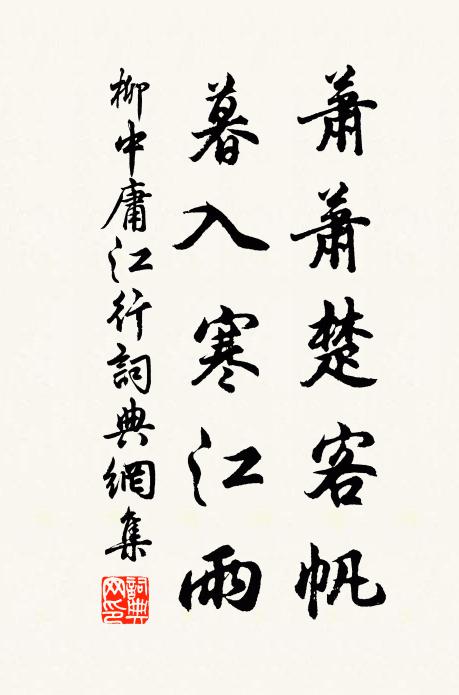 蕭蕭楚客帆
暮入寒江雨
柳中庸江行詞典網集
詞典網印